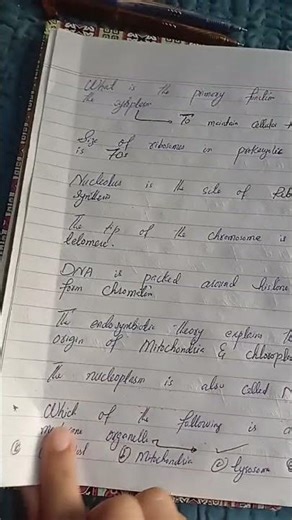 What is the primary function
the cytoplasm
→ To maintain cellular
Size of ribosomes in prokaryotic
is 70s
Nucleolus is the site of
synthesis
The tip of the chromosome is
telomere.
DNA is packed around histone
form chromatin
The endosymbiotic theory explains
origin of Mitochondria & chlorop
the nucleoplasm is also called N
Which of the following is a
organelle
b Mitochondria c lysosome